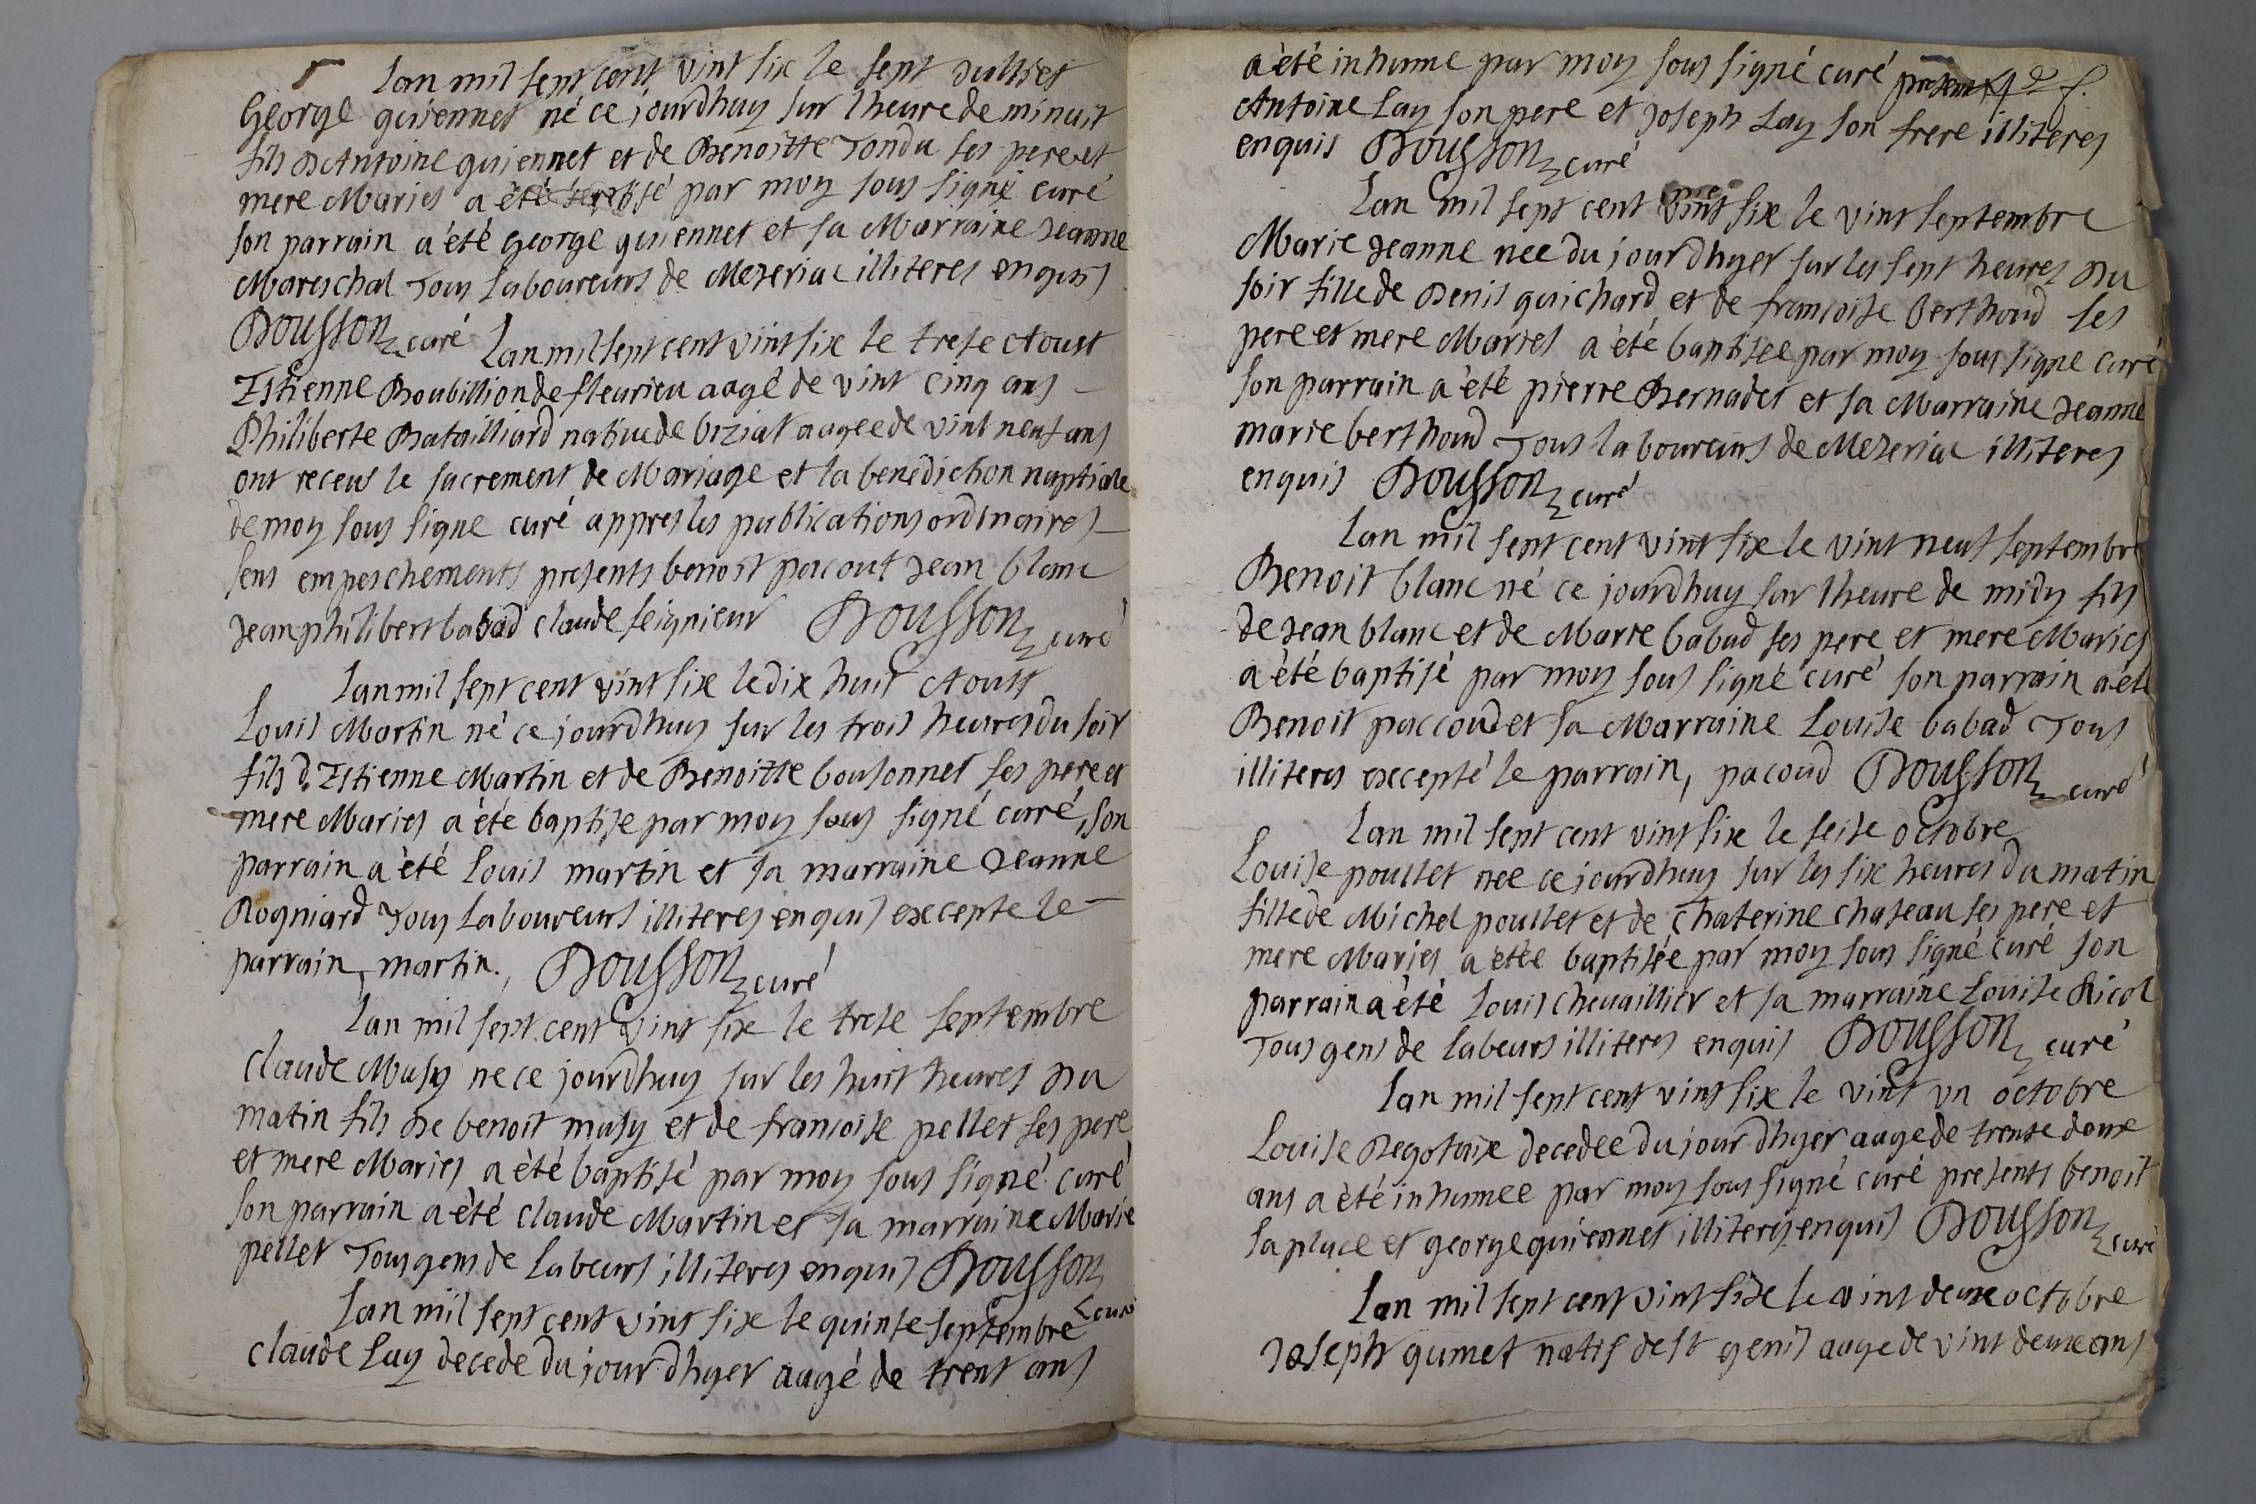 Lan mil sept cent vint six le sept Julliet
George guiennet né ce jourdhuy sur lheure de minuit
fils DAntoine guiennet et de Benoitte Tondu ses pere et
mere Maries a èté par moy sous signé curé
son parrain a èté George guiennet et sa Marraine Jeanne
Mareschal Tous laboureurs de Mezeriac illiteres enquis
Bousson curé Lan mil sept cent vint six le trese Aoust
Estienne Boubillion de fleurieu aagé de vint cinq ans
Philiberte Batailliard native de biziat aagee de vint neuf ans
ont receus le sacrement de Mariage et la benediction nuptiale
de moy sous signe curé appres les publications ordinaires
sens empeschements presents benoit pacout Jean blanc
Jean philibert babad claude seignieur Bousson curé
Lan mil sept cent vint six le dix huit Aoust
Louis Martin né ce jourdhuy sur les trois heures du soir
fils d. Estienne Martin et de Benoitte bousonnet ses pere et
mere Maries a èté baptise par moy sous signé curé, son
parrain a èté Louis martin et sa marraine Jeanne
Rogniard Tous laboureurs illiteres enquis excepte le
parrain, martin., Bousson curé
Lan mil sept cent vint six le trese septembre
Claude Musy ne ce jourdhuy sur les huit heures Du
matin fils De benoit musy et de francoise pellet ses pere
et mere Maries a èté baptisé par moy sous signé curé
son parrain a èté claude Martin et sa marraine Marie
pellet Tous gens de labeurs illiteres enquis Bousson
curé
Lan mil sept cent vint six le quinse septembre
claude Lay decede du jour dhyer aagé de trent ans
a èté inhume par moy sous signé curé
Antoine Lay son pere et Joseph Lay son frere illiteres
enquis Bousson curé
Lan mil sept cent vint six le vint septembre
Marie Jeanne nee du jour dhyer sur les sept heures Du
soir fille de Denis guichard et de francoise berthoud ses
pere et mere Maries a èté baptisee par moy sous signe curé
son parrain a èté pierre Bernadet et sa Marraine Jeanne
marie berthoud Tous laboureurs de Mezeriac illiteres
enquis Bousson curé
Lan mil sept cent vint six le vint neuf septembre
Benoit blanc né ce jourdhuy sur lheure de midy fils
de Jean blanc et de Marie babad ses pere et mere Maries
a èté baptisé par moy sous signé curé son parrain a èté
Benoit paccoud et sa Marraine Louise babad Tous
illiteres excepté le parrain, pacoud Bousson curé
Lan mil sept cent vint six le seise octobre
Louise poullet nee ce jourdhuy sur les six heures du matin
fille de Michel poullet et de Chaterine chateau ses pere et
mere Maries a etée baptisée par moy sous signé curé son
parrain a èté Louis chevaillier et sa marraine Louise Ricol
Tous gens de labeurs illiteres enquis Bousson curé
Lan mil sept cent vint six le vint vn octobre
Louise Regotaix decedee du jour dhyer aagee de trente doux
ans a èté inhumee par moy sous signé curé presents benoit
laplace et george guiennet illiteres enquis Bousson curé
Lan mil sept cent vint six le vint deux octobre
Joseph gumet natif de st genis aage de vint deux ans